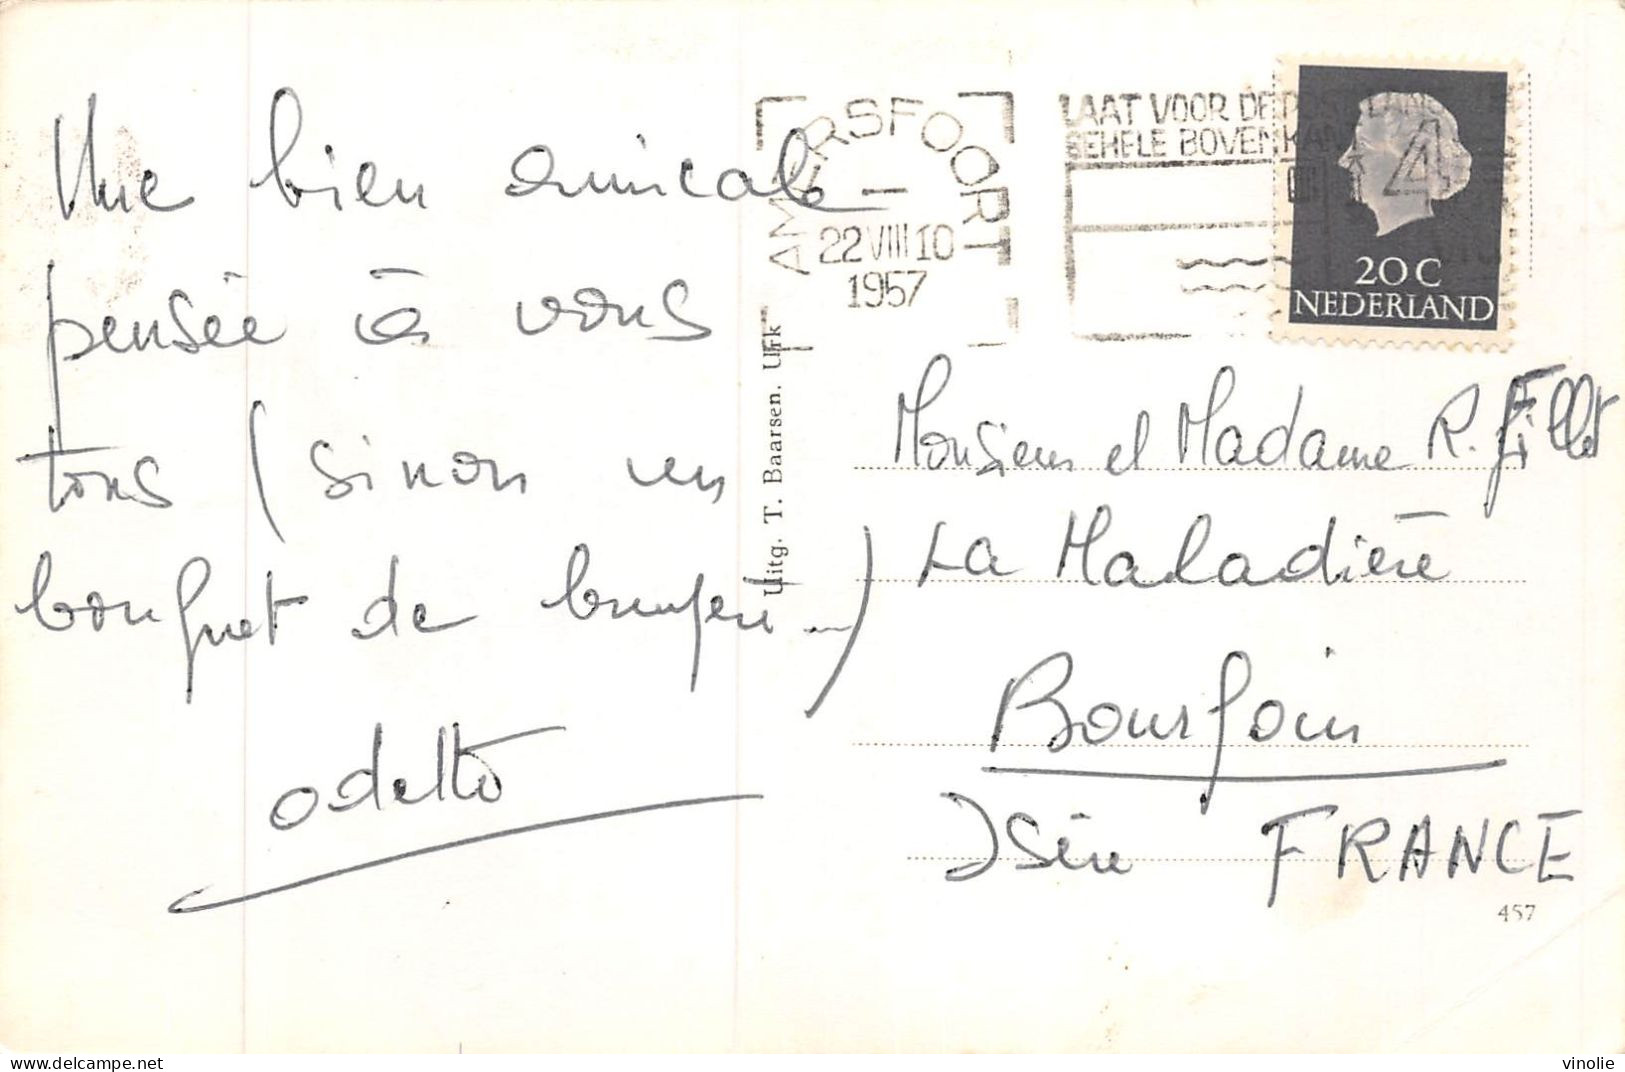 Une bien amicale
pensée à vous
tous (sinon un
bouquet de bruyère...)
Odette
Uitg. T. Baarsen. Urk
AMERSFOORT
22 VIII 10
1957
LAAT VOOR DE POSTZEGEL
GEHELE BOVENKANT
4
20 C
NEDERLAND
Monsieur et Madame R. Fillet
La Maladière
Bourgoin
Isère FRANCE
457
delcampe.net
vinolie